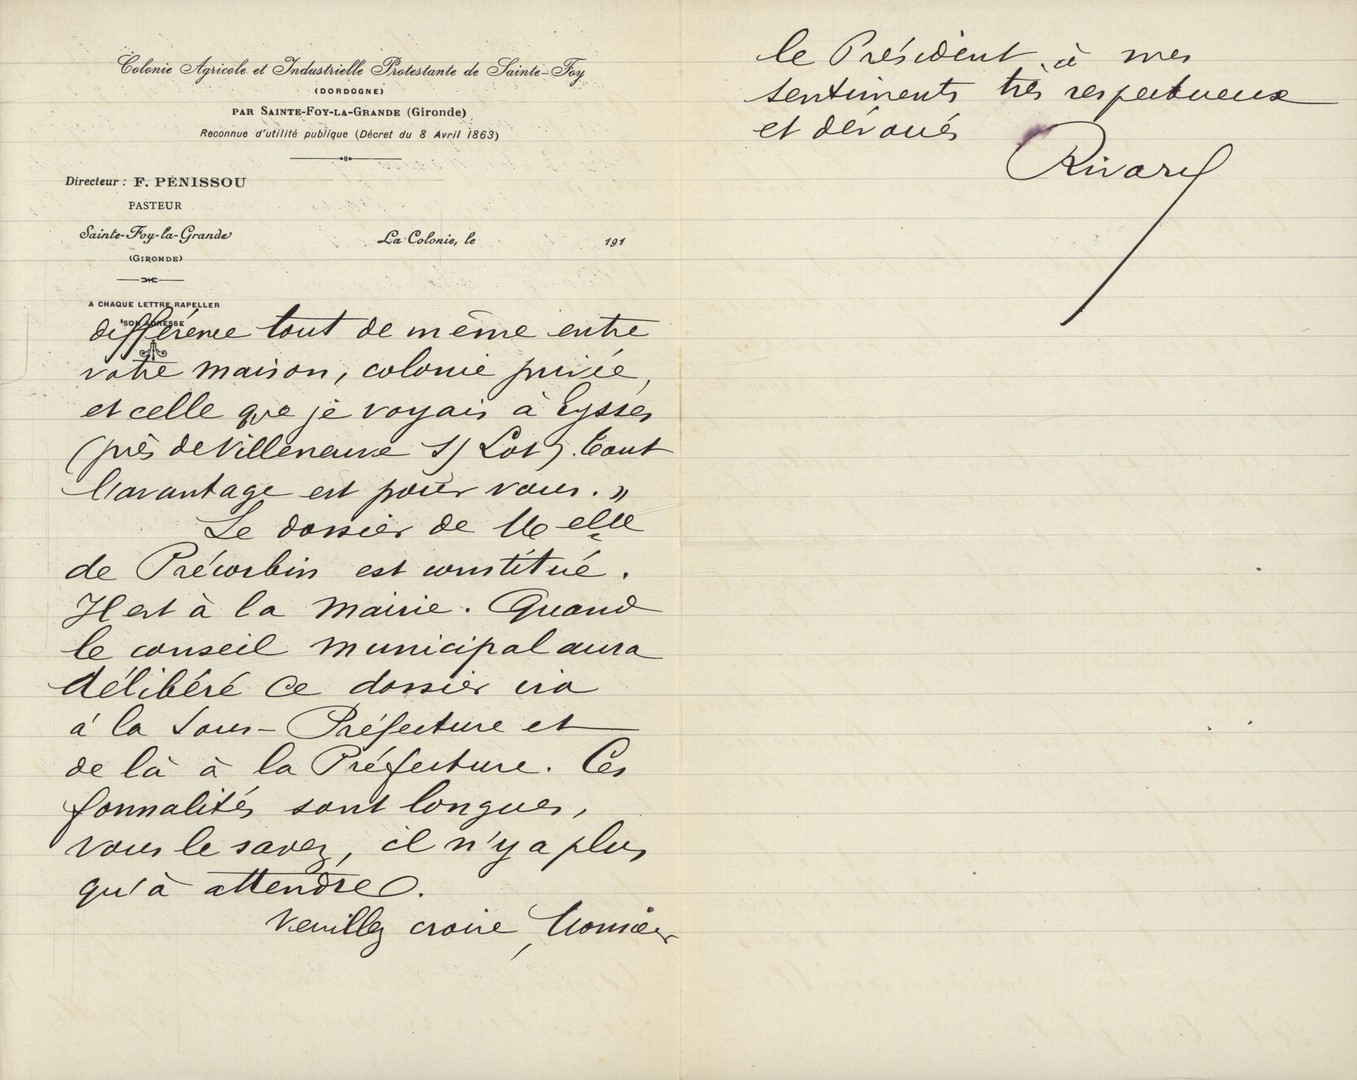 Colonie Agricole et Industrielle Protestante de Sainte-Foy
(DORDOGNE)
PAR SAINTE-FOY-LA-GRANDE (Gironde)
Reconnue d'utilité publique (Décret du 8 Avril 1863)
Directeur : F. PÉNISSOU
PASTEUR
Sainte-Foy-la-Grande
(GIRONDE)
La Colonie, le 191
A CHAQUE LETTRE RAPELLER
SON ADRESSE
différence tout de même entre
votre maison, colonie privée,
et celle que je voyais à Eysses
(près de Villeneuve s/ Lot). Tout
l'avantage est pour vous. »
Le dossier de Melle
de Précorbin est constitué.
Il est à la mairie. Quand
le conseil municipal aura
délibéré ce dossier ira
à la Sous-Préfecture et
de là à la Préfecture. Ces
formalités sont longues,
vous le savez, il n'y a plus
qu'à attendre.
Veuillez croire, Monsieur
le Président, à mes
sentiments très respectueux
et dévoués
Rivarel